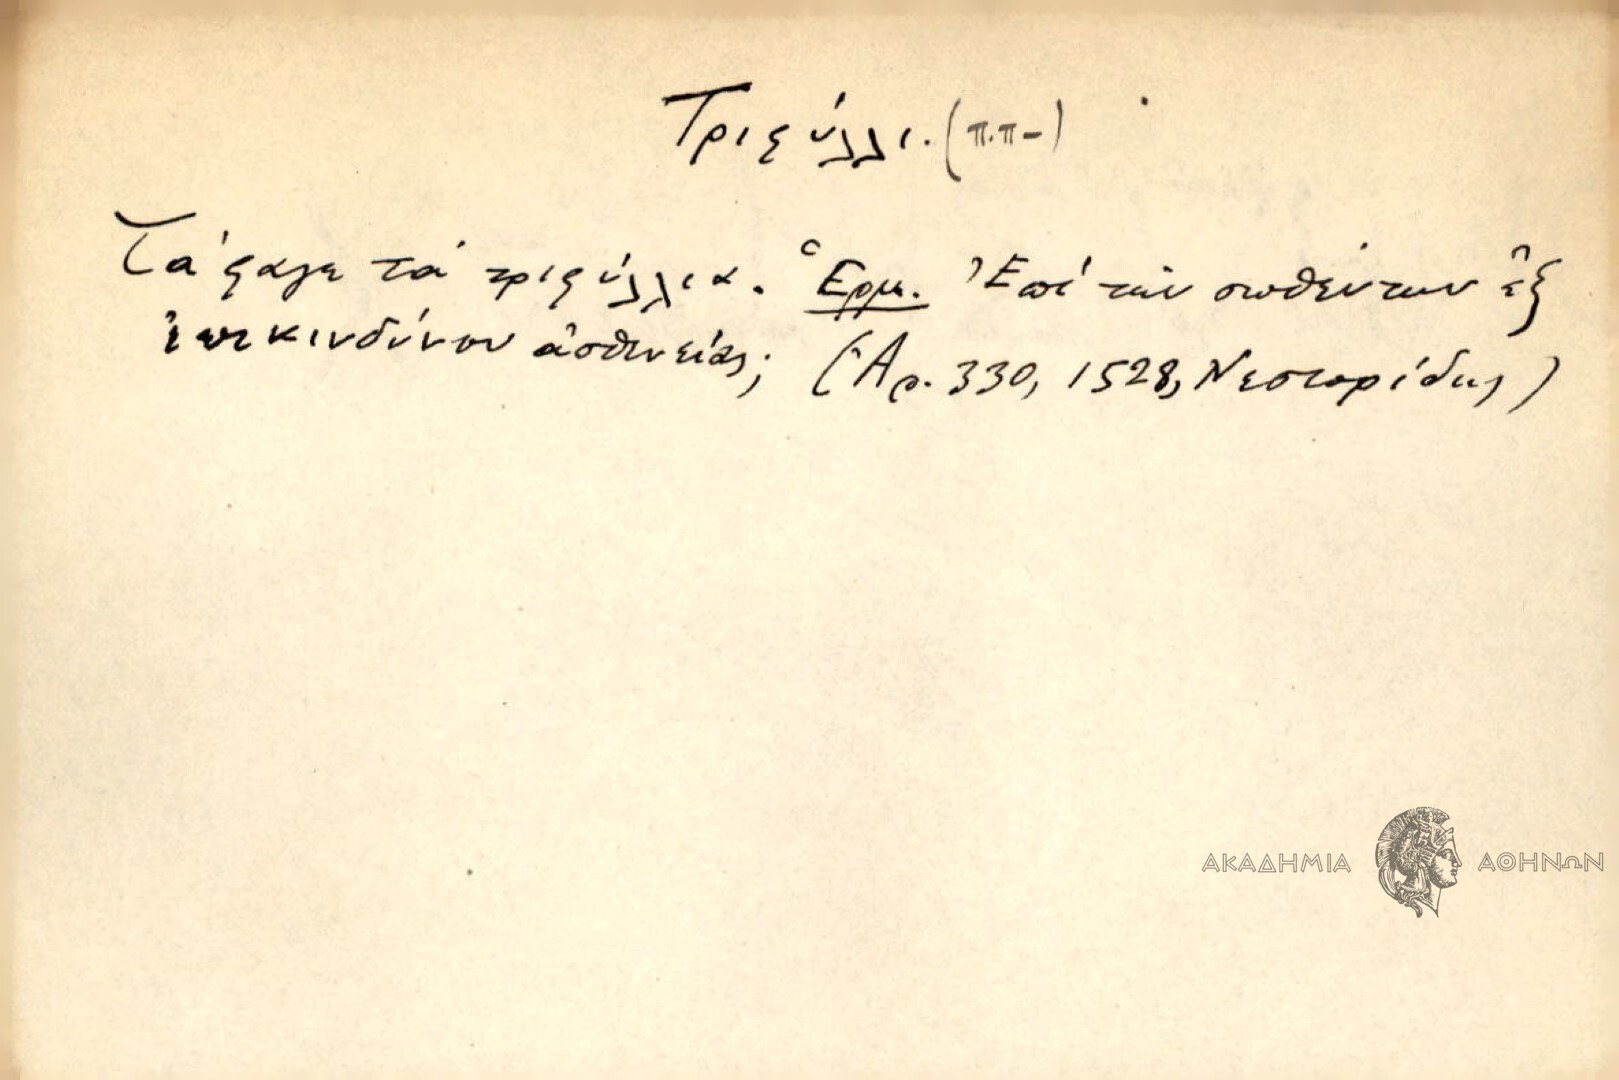 Τριφύλλι. (π.π-)
Τά 'φαγε τὰ τριφύλλια. Ἑρμ. Ἐπὶ τῶν σωθέντων ἐξ
ἐπικινδύνου ἀσθενείας; (Ἀρ. 330, 1528, Νεστορίδης)
ΑΚΑΔΗΜΙΑ ΑΘΗΝΩΝ